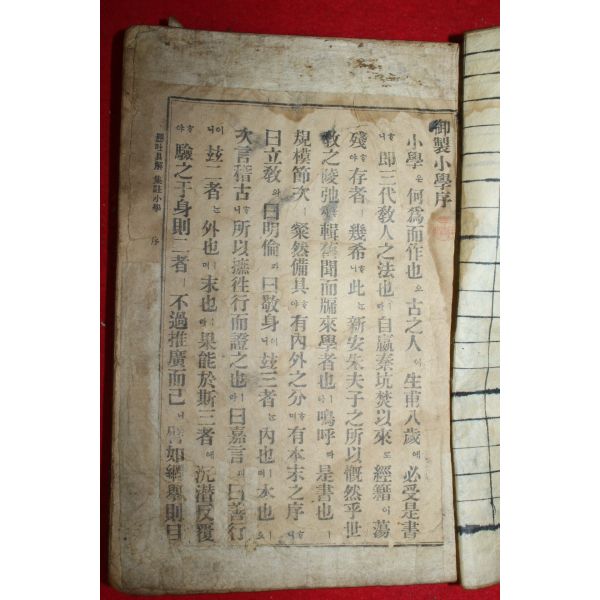 御製小學序
小學은何爲而作也오古之人이生甫八歲에必受是書
ᄒᆞ니即三代敎人之法也ㅣ라自嬴秦坑焚以來로經籍이蕩
殘ᄒᆞ야存者ㅣ幾希ᄒᆞ니此는新安朱夫子之所以慨然乎世
敎之陵弛ᄒᆞ사輯舊聞而牖來學者也ㅣ라嗚呼라是書也ㅣ
規模節次ㅣ粲然備具ᄒᆞ야有內外之分ᄒᆞ며有本末之序ᄒᆞ니
曰立敎와曰明倫과曰敬身이니玆三者는內也ㅣ며本也ㅣ오
次言稽古ᄒᆞ니所以摭往行而證之也ㅣ라曰嘉言과曰善行
이니玆二者는外也ㅣ며末也ㅣ라果能於斯三者에沉潛反覆
ᄒᆞ야驗之于身則二者ㅣ不過推廣而已니譬如綱擧則目
懸吐具解 集註小學 序